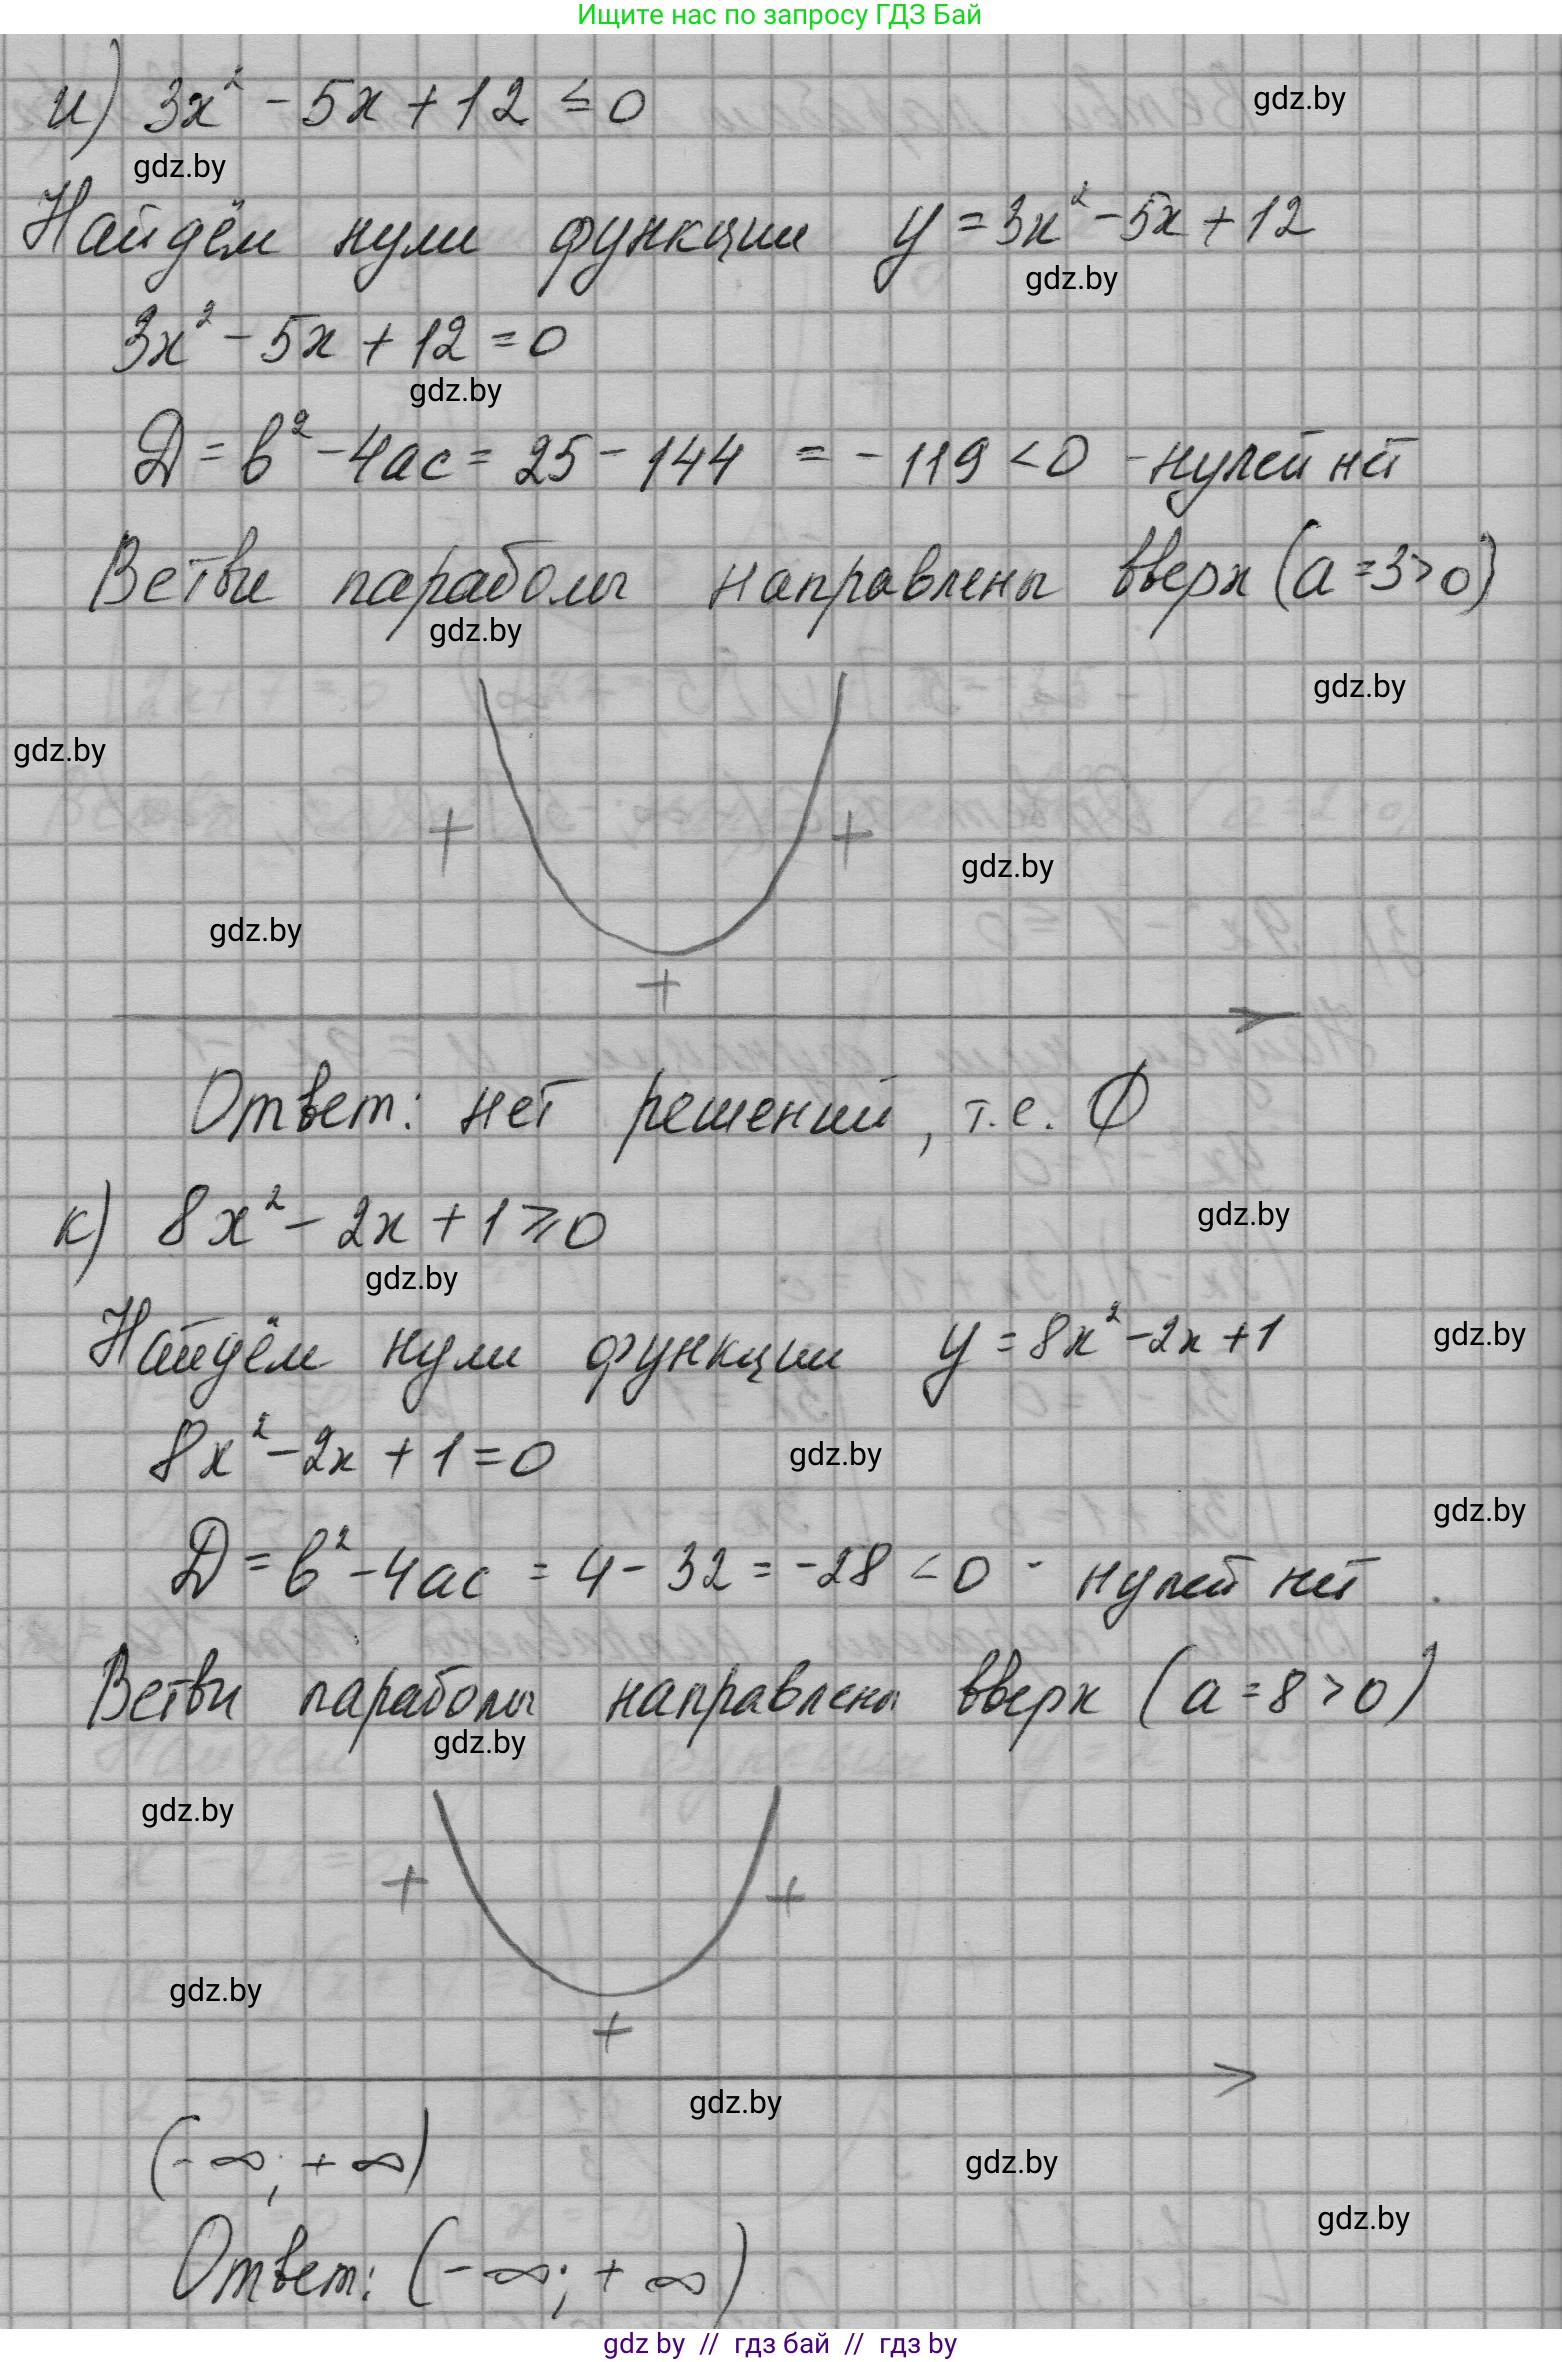 Ищите нас по запросу ГДЗ Бай
и) 3x² - 5x + 12 ≤ 0
gdz.by
gdz.by
Найдём нули функции y = 3x² - 5x + 12
gdz.by
3x² - 5x + 12 = 0
gdz.by
D = b² - 4ac = 25 - 144 = -119 < 0 - нулей нет
Ветви параболы направлены вверх (a = 3 > 0)
gdz.by
gdz.by
gdz.by
+ +
gdz.by
gdz.by
+
Ответ: нет решений, т.е. ∅
к) 8x² - 2x + 1 ≥ 0
gdz.by
gdz.by
Найдём нули функции y = 8x² - 2x + 1
gdz.by
8x² - 2x + 1 = 0
gdz.by
gdz.by
D = b² - 4ac = 4 - 32 = -28 < 0 - нулей нет.
Ветви параболы направлены вверх (a = 8 > 0)
gdz.by
gdz.by
+ +
gdz.by
+
gdz.by
(-∞; +∞)
gdz.by
gdz.by
Ответ: (-∞; +∞)
gdz by // гдз бай // гдз by